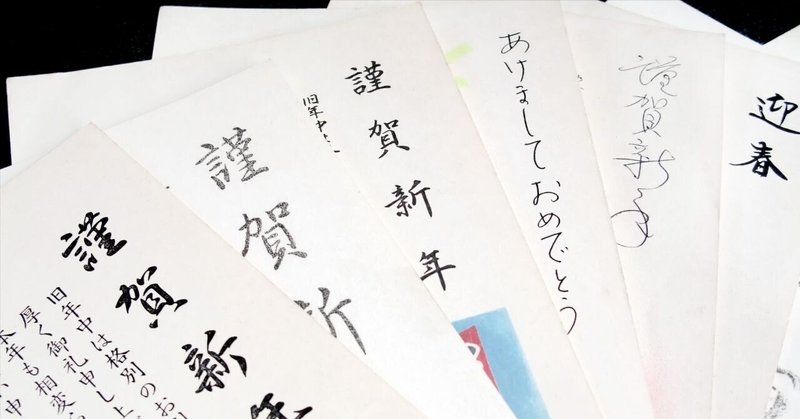 謹賀新年
旧年中は格別のお
厚く御礼申し上
本年も相変
謹賀新
謹賀新年
旧年中
あけましておめでとう
謹賀新年
迎春